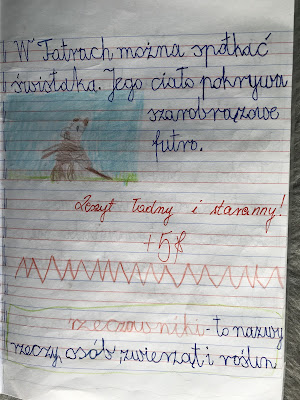 W Tatrach można spotkać
świstaka. Jego ciało pokrywa
szarobrązowe
futro.
Zeszyt ładny i staranny!
rzeczowniki - to nazwy
rzeczy, osób, zwierząt i roślin